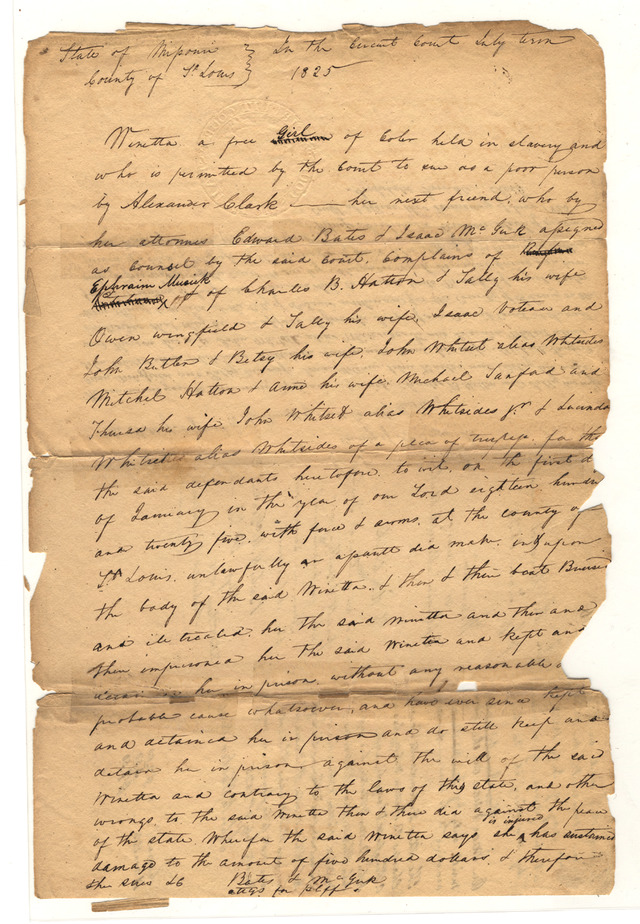 State of Missouri } In the Circuit Court July term
County of St Louis } 1825
Winetta a free Girl of Color held in slavery and
who is permitted by the Court to sue as a poor person
by Alexander Clark — her next friend, who by
her attornies Edward Bates & Isaac McGirk assigned
as Counsel by the said Court, Complains of
Ephraim Musick
of Charles B. Hatton & Sally his wife
Owen Wingfield & Sally his wife, Isaac Voteau and
John Butler & Betsy his wife, John Whitset alias Whitsides
Mitchel Hatton & Anne his wife Michael Sanford and
Thursa his wife John Whitset alias Whitsides jr. & Lucinda
Whitset alias Whitsides of a plea of trespass, for that
the said defendants heretofore, to wit, on the first d
of January in the year of our Lord eighteen hundr
and twenty five, with force & arms, at the county of
St Louis, unlawfully an assault did make in & upon
the body of the said Winetta, & then & there beat Bruised
and ill treated, her the said Winetta and then and
there imprisoned her the said Winetta and kept and
her in prison, without any reasonable
probable cause whatsoever, and have ever since kept
and detained her in prison and do still keep and
detain her in prison against the will of the said
Winetta and contrary to the laws of this state, and other
wrongs to the said Winetta then & there did against the peace
of the state Wherefore the said Winetta says she is injured & has sustained
damage to the amount of five hundred dollars & therefore
she sues &c Bates & McGirk
attys for plff